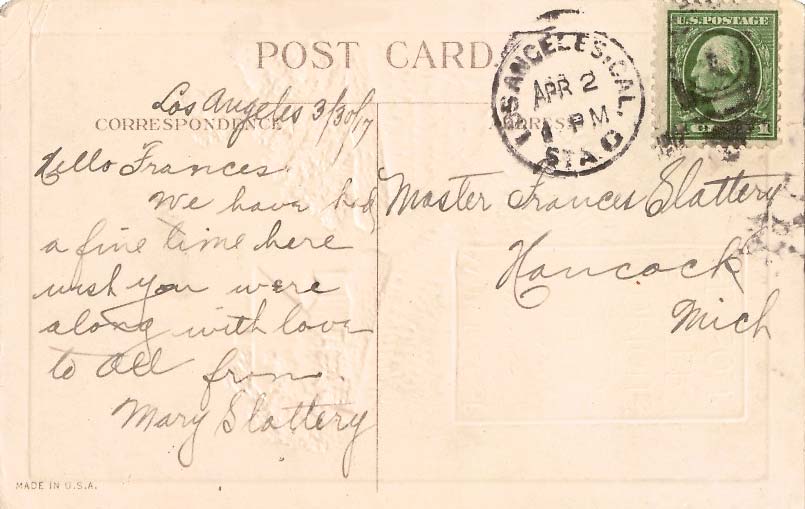 POST CARD
U.S. POSTAGE
LOS ANGELES, CAL.
APR 2
PM
STA. C
Los Angeles 3/30/17
CORRESPONDENCE
ADDRESS
Hello Frances
We have had
a fine time here
wish you were
along with love
to All from
Mary Slattery
Master Frances Slattery
Hancock
Mich
MADE IN U.S.A.